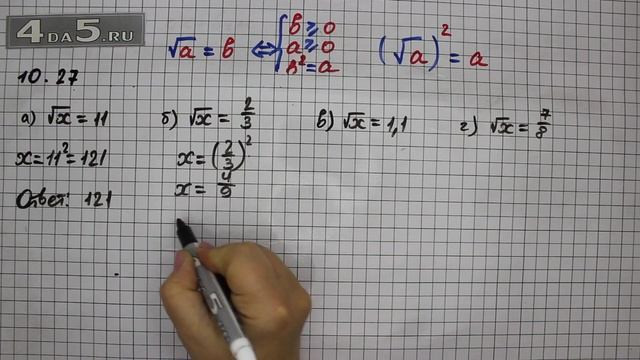 4DA5.RU
√a = b ⟺ { b ⩾ 0
a ⩾ 0
b² = a
(√a)² = a
10.27
а) √x = 11
x = 11² = 121
Ответ: 121
б) √x = 2/3
x = (2/3)²
x = 4/9
в) √x = 1,1
г) √x = 7/8